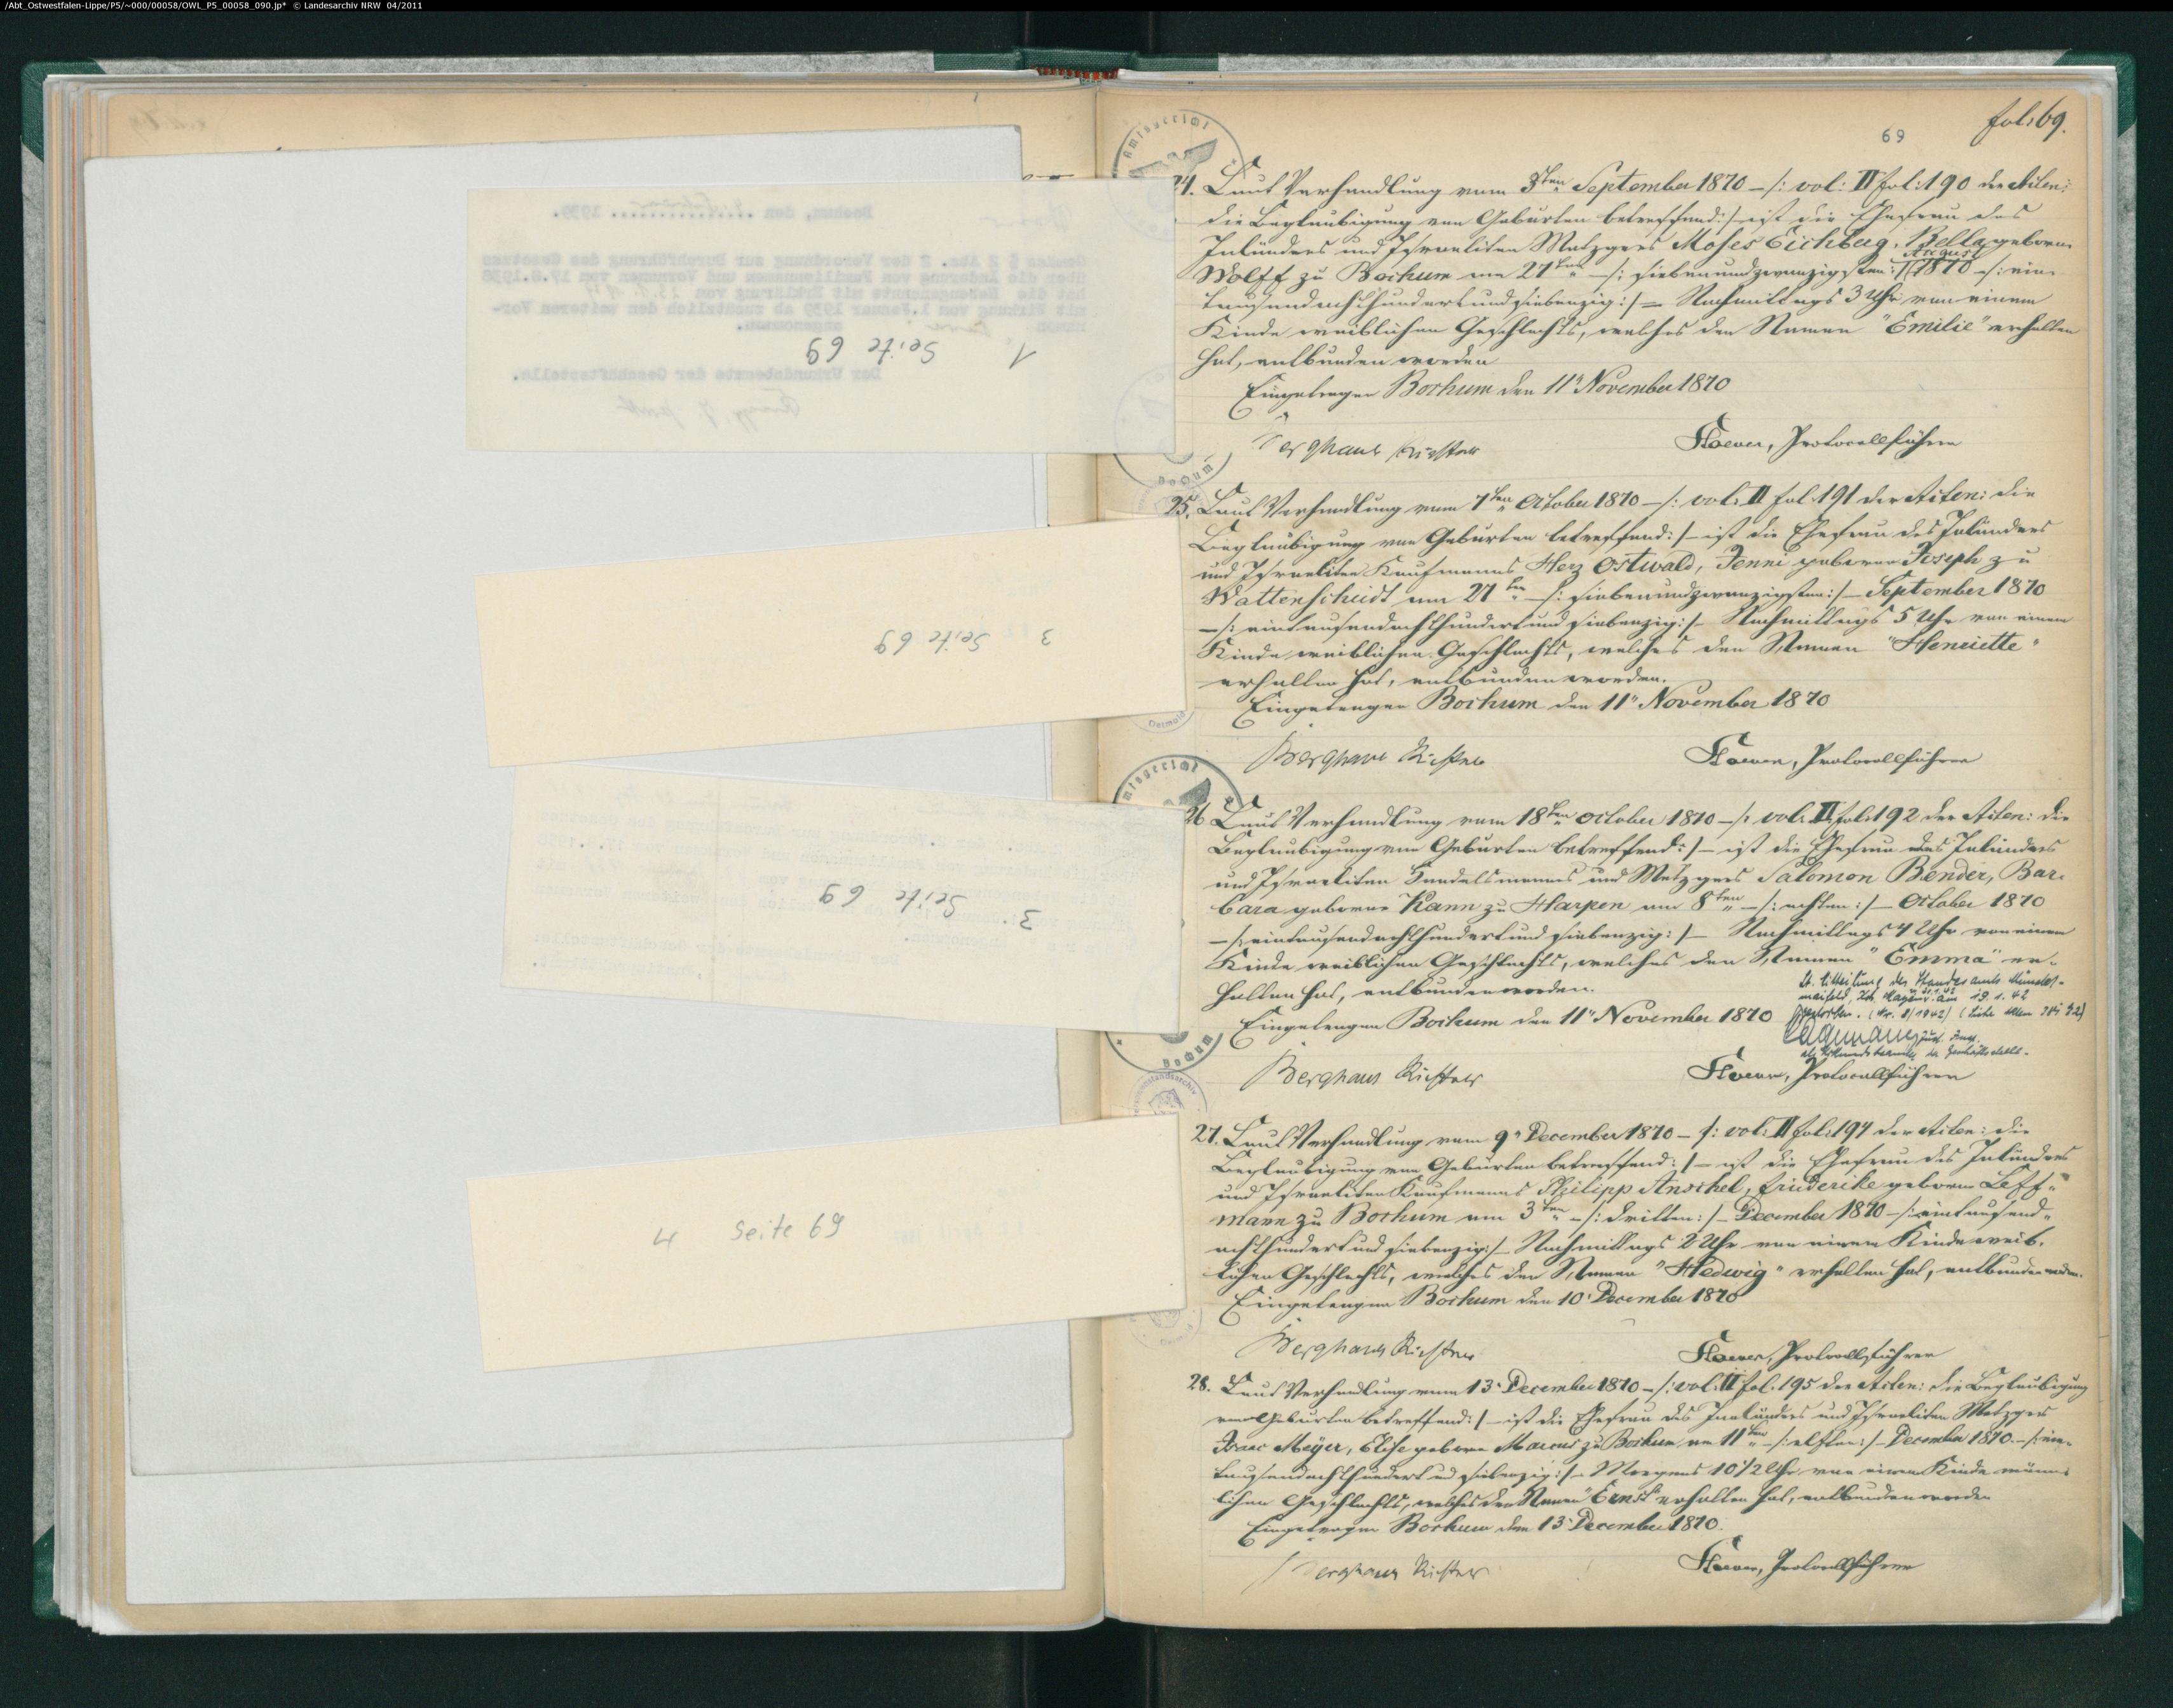 /Abt_Ostwestfalen-Lippe/P5/~000/00058/OWL_P5_00058_090.jp* © Landesarchiv NRW 04/2011
fol: 69.
69
Amtsgericht
24. Laut Verhandlung vom 3ten September 1870 -/: vol: II fol: 190 der Akten:
die Beglaubigung von Geburten betreffend:/- ist die Ehefrau des
Inländers und Israeliten Metzgers Moses Eichberg, Bella geborne
August
Wolff zu Bochum am 27ten -/: siebenundzwanzigsten:/ 1870 -/: ein-
tausendachthundertundsiebenzig:/- Nachmittags 3 Uhr von einem
Kinde weiblichen Geschlechts, welches den Namen "Emilie" erhalten
hat, entbunden worden
Eingetragen Bochum den 11" November 1870
Berghaus Richter
Hoever, Protocollführer
Bochum
25. Laut Verhandlung vom 7ten October 1870 -/: vol: II fol: 191 der Akten: die
Beglaubigung von Geburten betreffend:/- ist die Ehefrau des Inländers
und Israeliten Kaufmanns Herz Ostwald, Jenni geborne Joseph zu
Wattenscheidt am 27ten -/: siebenundzwanzigsten:/- September 1870
-/: eintausendachthundertundsiebenzig:/- Nachmittags 5 Uhr von einem
Kinde weiblichen Geschlechts, welches den Namen "Henriette"
erhalten hat, entbunden worden.
Eingetragen Bochum den 11" November 1870
Detmold
Berghaus Richter
Hoever, Protocollführer
Amtsgericht
26 Laut Verhandlung vom 18ten October 1870 -/: vol: II fol: 192 der Akten: die
Beglaubigung von Geburten betreffend:/- ist die Ehefrau des Inländers
und Israeliten Handelsmannes und Metzgers Salomon Bender, Bar-
bara geborne Kann zu Harpen am 8ten -/: achten:/- October 1870
-/: eintausendachthundertundsiebenzig:/- Nachmittags 4 Uhr von einem
Kinde weiblichen Geschlechts, welches den Namen "Emma" er-
halten hat, entbunden worden.
Lt. Mitteilung des Standesamts Münster-
maifeld, am 19.1.42
Eingetragen Bochum den 11" November 1870
verstorben. (Nr. 1/1942)
als Urkundsbeamter der Geschäftsstelle.
Bochum
Berghaus Richter
Hoever, Protocollführer
27. Laut Verhandlung vom 9" December 1870 -/: vol: II fol: 194 der Akten: die
Beglaubigung von Geburten betreffend:/- ist die Ehefrau des Inländers
und Israeliten Kaufmanns Philipp Anschel, Friederike geborne Leff-
mann zu Bochum am 3ten -/: dritten:/- December 1870 -/: eintausend-
achthundertundsiebenzig:/- Nachmittags 2 Uhr von einem Kinde weib-
lichen Geschlechts, welches den Namen "Hedwig" erhalten hat, entbunden worden.
Eingetragen Bochum den 10" December 1870
Berghaus Richter
Hoever, Protocollführer
28. Laut Verhandlung vom 13" December 1870 -/: vol: II fol: 195 der Akten: die Beglaubigung
von Geburten betreffend:/- ist die Ehefrau des Inländers und Israeliten Metzgers
Isaac Meyer, Elise geborne Marcus zu Bochum am 11ten -/: elften:/- December 1870 -/: ein-
tausendachthundert und siebenzig:/- Morgens 10 1/2 Uhr von einem Kinde männ-
lichen Geschlechts, welches den Namen "Ernst" erhalten hat, entbunden worden
Eingetragen Bochum den 13" December 1870.
Berghaus Richter
Hoever, Protocollführer
Bochum, den 1939.
Gemäß § 2 Abs. 2 der Verordnung zur Durchführung des Gesetzes
über die Änderung von Familiennamen und Vornamen vom 17.8.1938
hat die Vorgenannte mit Erklärung vom
mit Wirkung vom 1. Januar 1939 ab zusätzlich den weiteren Vor-
namen angenommen.
Der Urkundsbeamte der Geschäftsstelle.
1 Seite 69
3 Seite 69
3. Seite 69
4 Seite 69